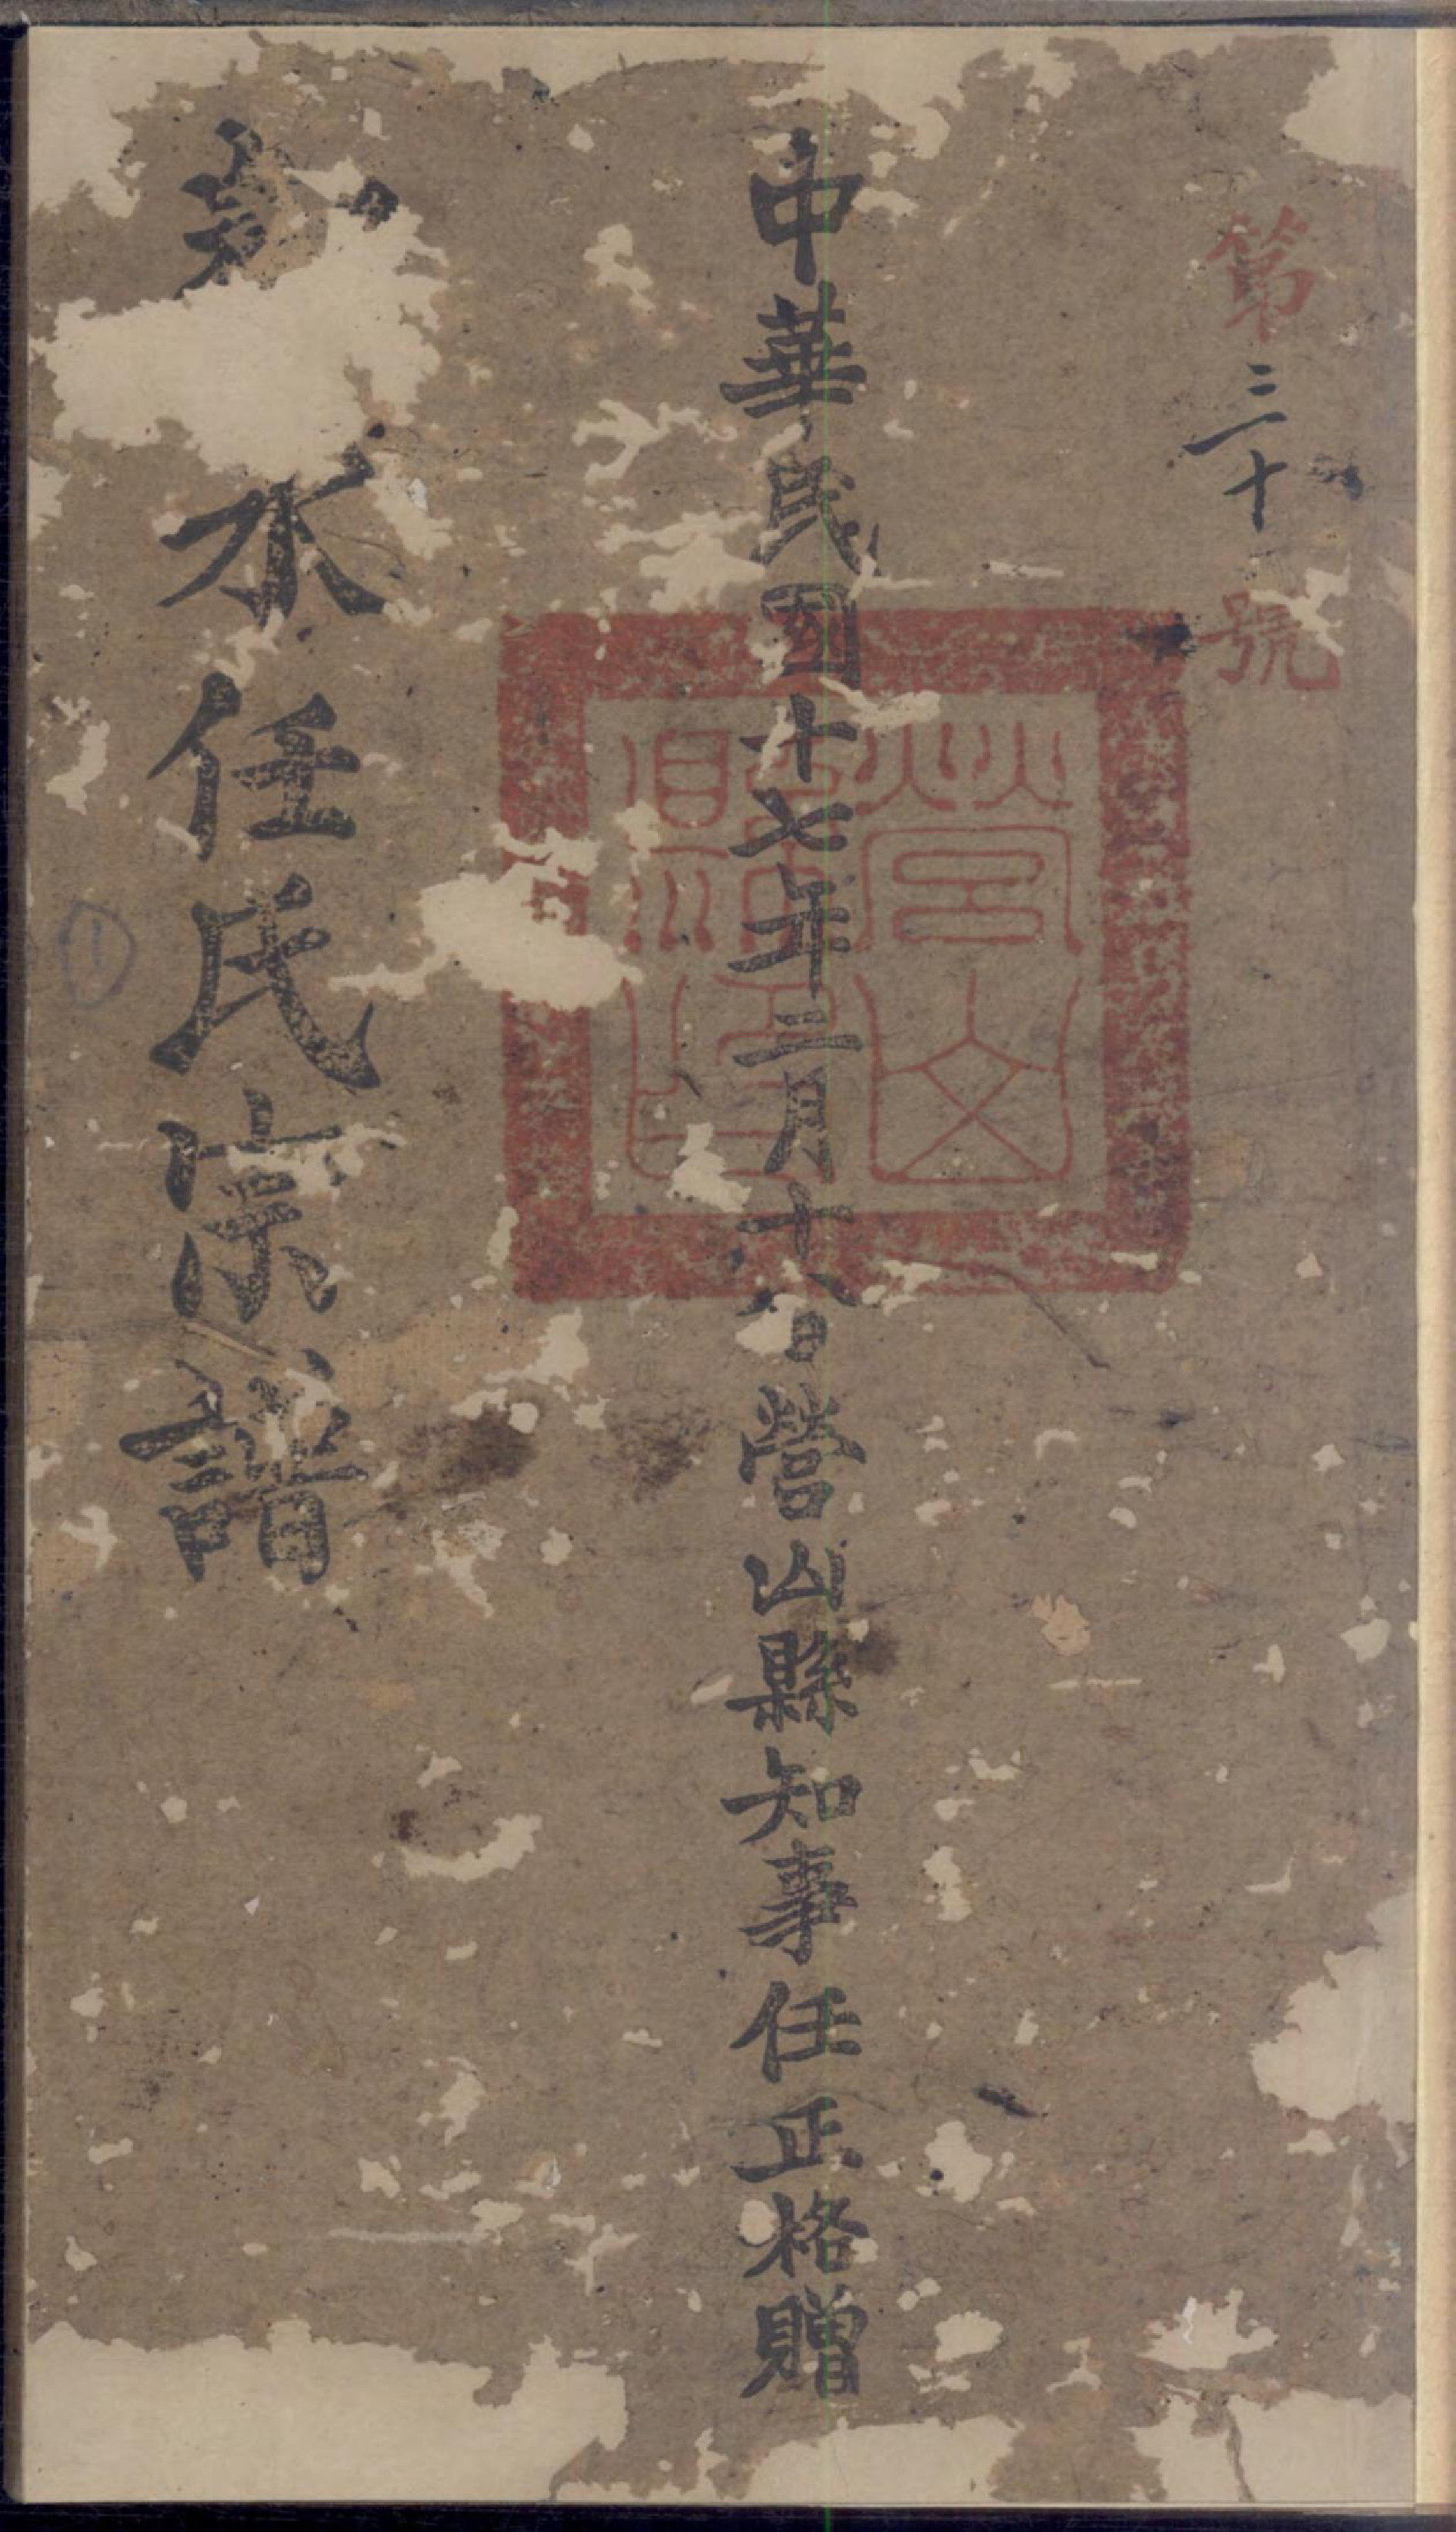 第三十號
中華民國十七年三月十八日營山縣知事任正格贈
營山
縣印
水任氏宗譜
①